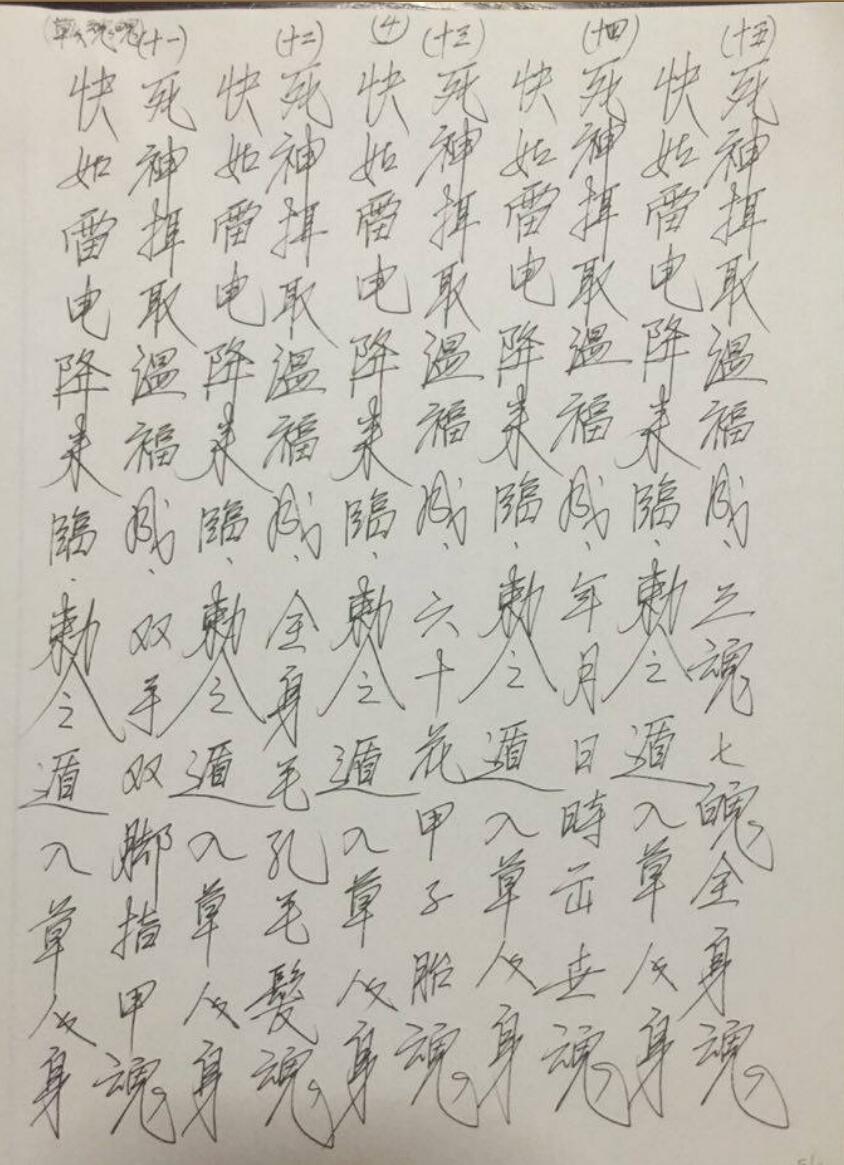 (十五)
死神挕取溫福成、三魂七魄全身魂
快如雷电降来臨、勅令遁入草人身
(十四)
死神挕取溫福成、年月日時出世魂
快如雷电降来臨、勅令遁入草人身
(十三)
死神挕取溫福成、六十花甲子胎魂
④
快如雷电降来臨、勅令遁入草人身
(十二)
死神挕取溫福成、全身毛孔毛髮魂
快如雷电降来臨、勅令遁入草人身
(十一)
死神挕取溫福成、双手双脚指甲魂
(草人魂魄)
快如雷电降来臨、勅令遁入草人身